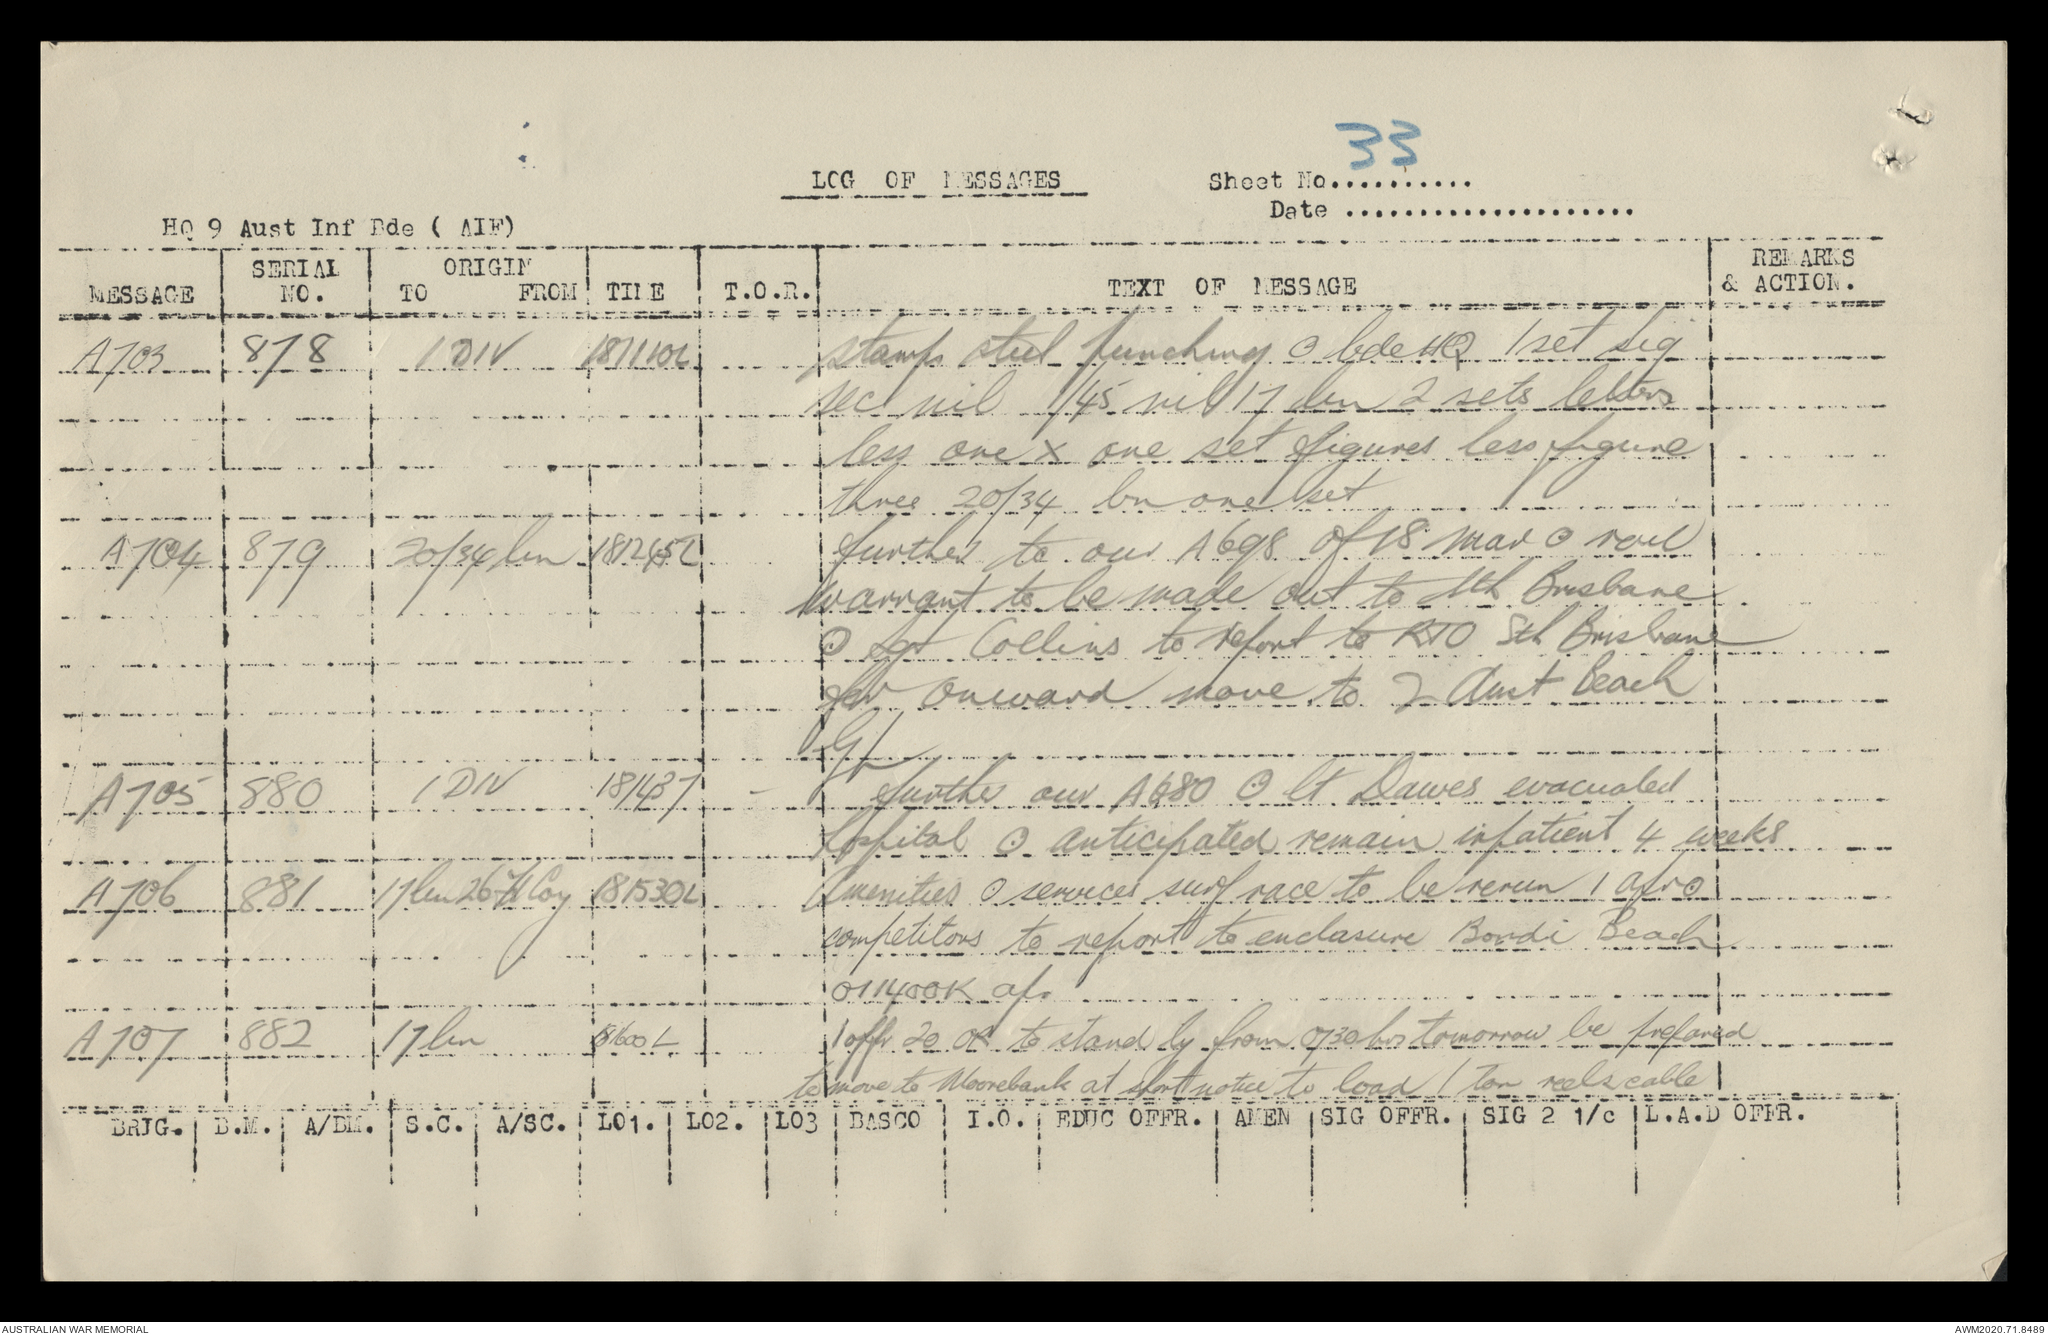 33
LOG OF MESSAGES
Sheet No..........
Date ....................
HQ 9 Aust Inf Bde ( AIF)
MESSAGE SERIAL NO. ORIGIN TO FROM TIME T.O.R. TEXT OF MESSAGE REMARKS & ACTION.
A703 878 1 DIV 181110L stamps steel punching ⊙ bde HQ 1 set sig
sec nil 1/45 nil 17 bn 2 sets letters
less one x one set figures less figure
three 20/34 bn one set
A704 879 20/34 bn 181245L further to our A698 of 18 mar ⊙ rail
warrant to be made out to Sth Brisbane
⊙ Sgt Collins to report to RTO Sth Brisbane
for onward move to 2 Aust Beach
Gp
A705 880 1 DIV 181437 - further our A680 ⊙ lt Dawes evacuated
hospital ⊙ anticipated remain inpatient 4 weeks
A706 881 17 bn 26 Coy 181530L Amenities ⊙ services surf race to be rerun 1 apr ⊙
competitors to report to enclosure Bondi Beach
011400K apr
A707 882 17 bn 181600L 1 offr 20 OR to stand by from 0730 hrs tomorrow be prepared
to move to Moorebank at short notice to load 1 ton reels cable
BRIG. B.M. A/BM. S.C. A/SC. LO1. LO2. LO3 BASCO I.O. EDUC OFFR. AMEN SIG OFFR. SIG 2 1/c L.A.D OFFR.
AUSTRALIAN WAR MEMORIAL
AWM2020.71.8489